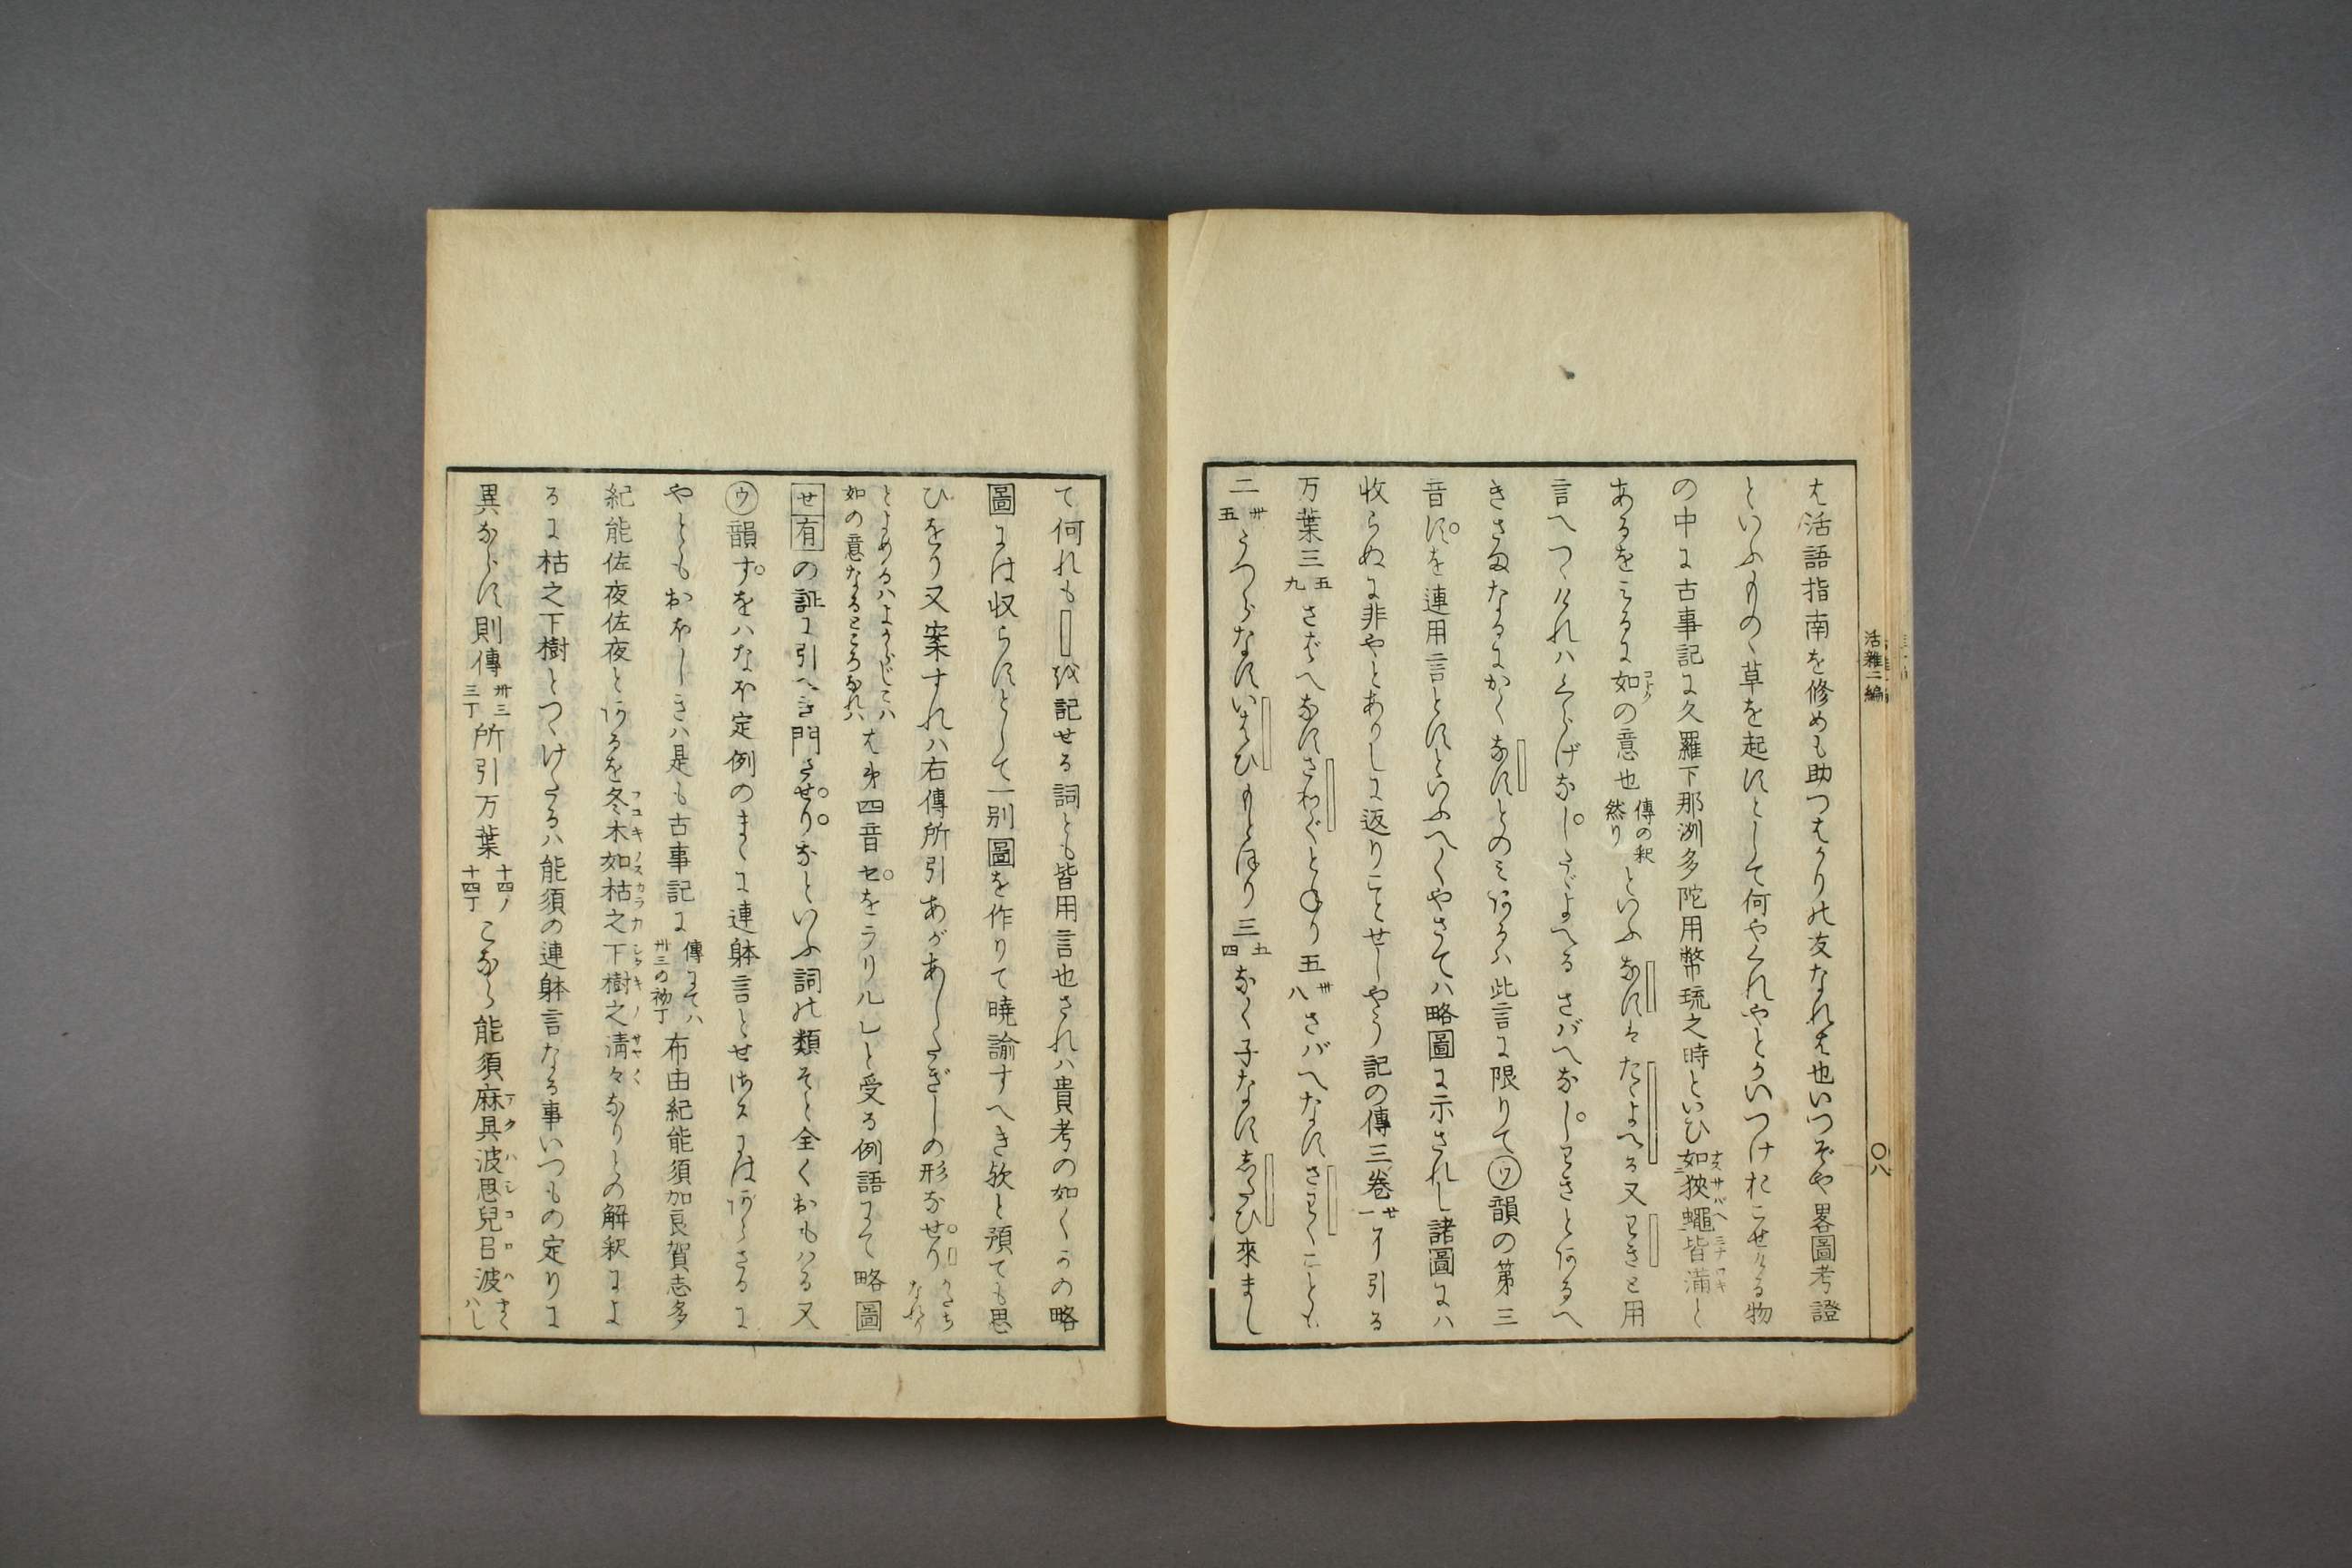 活雑二編
〇八
は活語指南を修めも助つはかり此友なれは也いつそや畧圖考證
といふものゝ草を起すとして何やくれやとかいつけおこせける物
の中に古事記に久羅下那洲多陀用幣琉之時といひ如狹蠅皆滿と
あるをこゝに如の意也傳の釈然りといふなすはたゝよへる又わきと用
言へつゝけれハくらげなしたゞよへるさバへなしわきとあるへ
きさまなるにかくなすとのミあるハ此言に限りてウ韻の第三
音すを連用言とすといふへくやさてハ略圖に示されし諸圖にハ
收らぬに非やとありしに返りことせしやう記の傳三卷廿一に引る
万葉三五九さばへなすさわぐとねり五卅八さバへなすさわくことも
二卅五うつらなすいはひもとほり三五四なく子なすしたひ來まし
て何れもを記せる詞とも皆用言也されハ貴考の如くかの略
圖には収らすとして一別圖を作りて曉諭すへき歟と預ても思
ひをり又案すれハ右傳所引あがあしたぎしの形なせり
如の意なるところなれハは第四音セをラリルレと受る例語にて略圖
せ有の証に引へき門させりなといふ詞の類そと全くおもへる又
ウ韻すをハなほ定例のまゝに連躰言とせはにはあらさるに
やともおほしきハ是も古事記に傳にてハ卅三の初丁布由紀能須加良賀志多
紀能佐夜佐夜とあるを冬木如枯之下樹之清々なりとの解釈によ
るに枯之下樹とつゝけたるハ能須の連躰言なる事いつもの定りに
異ならす則傳卅三三丁所引万葉十四ノ十四丁こなら能須麻具波思兒呂波